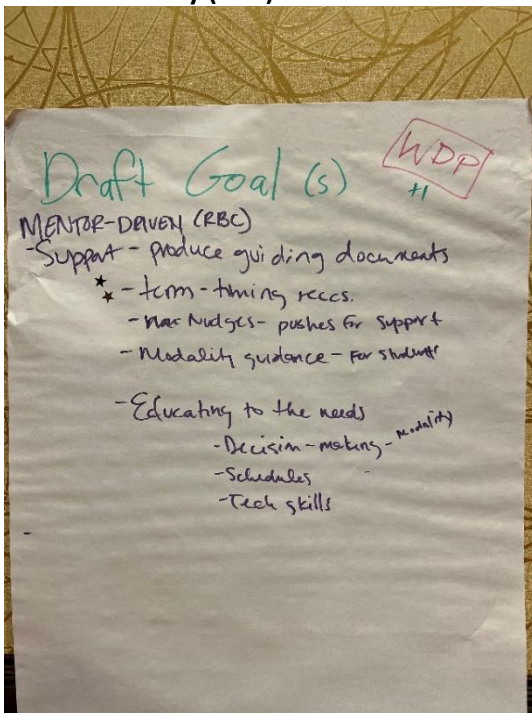 Draft Goal (s)
WDP
+1
MENTOR-DRIVEN (RBC)
-Support - produce guiding documents
- term - timing reccs.
- Nudges - pushes for support
- Modality guidance - For students
- Educating to the needs
- Decision - making - modality
- Schedules
- Tech skills